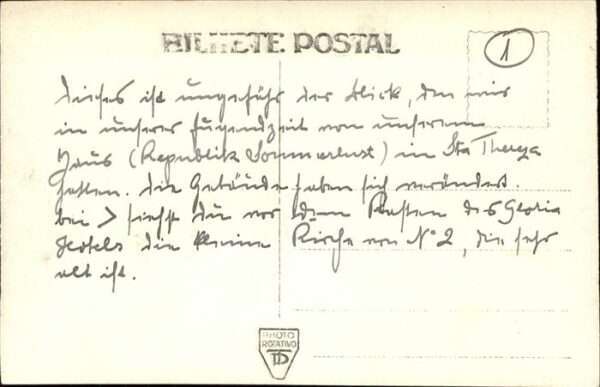 BILHETE POSTAL
1
dieses ist ungefähr der Blick, den wir
in unserer Jugendzeit von unserem
Haus (Republik Sommerlust) in Sta Thereza
hatten. Die Gebäude haben sich verändert.
bei > siehst du vor dem Kasten des Gloria
Hotels die kleine Kirche von N° 2, die sehr
alt ist.
PHOTO
ROTATIVO